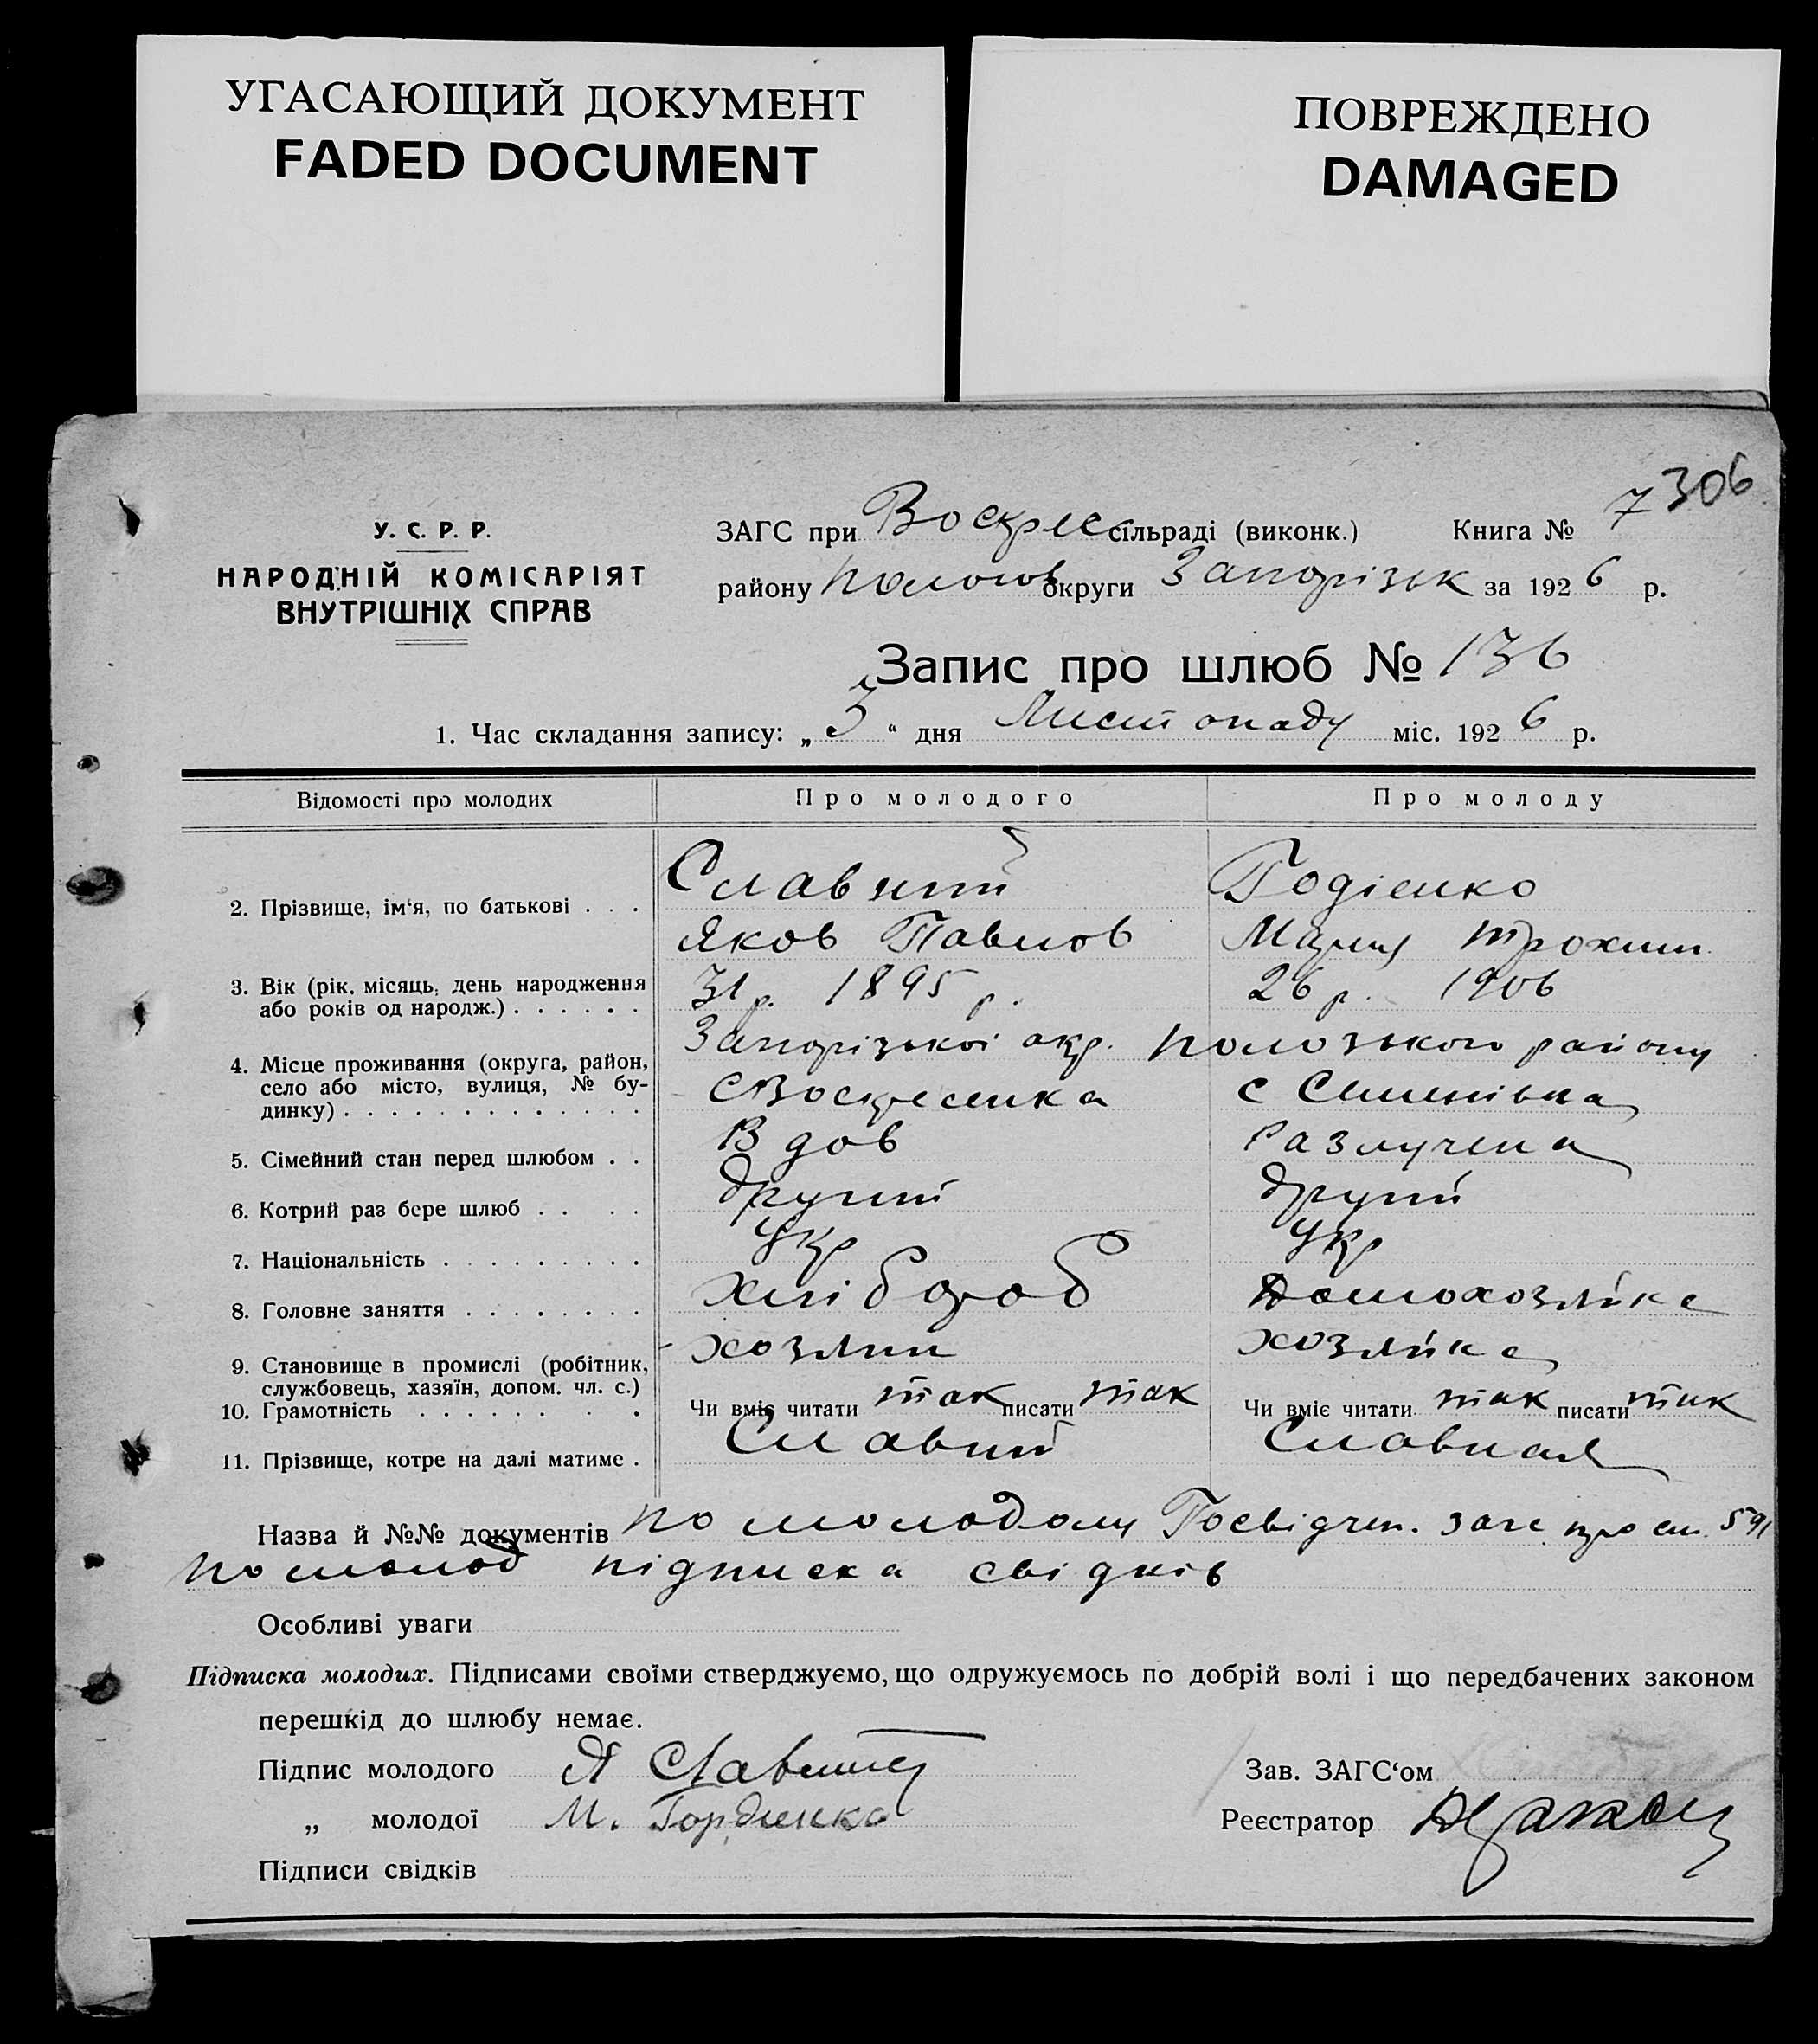 УГАСАЮЩИЙ ДОКУМЕНТ
FADED DOCUMENT
ПОВРЕЖДЕНО
DAMAGED
306
У. С. Р. Р.
НАРОДНІЙ КОМІСАРІЯТ
ВНУТРІШНІХ СПРАВ
ЗАГС при Воскрес сільраді (виконк.) Книга № 7
району Пологов округи Запорізьк за 1926 р.
Запис про шлюб № 136
1. Час складання запису: „ 3 “ дня Листопаду міс. 1926 р.
Відомості про молодих Про молодого Про молоду
Славний
2. Прізвище, ім‘я, по батькові . . .
Яков Павлов Мария Трохим
3. Вік (рік, місяць, день народження 31 р. 1895 р. 26 р. 1906
або років од народж.) . . . . . .
Запорізької окр. Полозького району
4. Місце проживання (округа, район,
село або місто, вулиця, № бу- с Воскресенка с Семенівка
динку) . . . . . . . . . . . . .
5. Сімейний стан перед шлюбом . . Вдов Разлучена
6. Котрий раз бере шлюб . . . . другий другий
7. Національність . . . . . . . . . Укр Укр
8. Головне заняття . . . . . . . . хлібороб Домохозяйка
9. Становище в промислі (робітник, хозяин хозяйка
службовець, хазяїн, допом. чл. с.)
10. Грамотність . . . . . . . . . Чи вміє читати так писати так Чи вміє читати так писати так
11. Прізвище, котре на далі матиме . Славний Славная
Назва й №№ документів по молодому Посвідчен. загс про см. 591
по молод підписка свідків
Особливі уваги
Підписка молодих. Підписами своїми стверджуємо, що одружуємось по добрій волі і що передбачених законом
перешкід до шлюбу немає.
Підпис молодого Я Славний Зав. ЗАГС‘ом
„ молодої М. Гордиенко Реєстратор
Підписи свідків